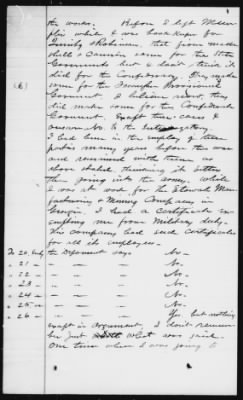 the works. Before I left Mem-
phis while I was book keeper for
Quinby & Robinson, that firm made
shell & cannon some for the State
Governments but I don't think it
did for the Confederacy. They made
some for the Provisional
Government I believe and they
did make some for the Confederate
Government. Except these cases &
answer No. 6 the
(6)
I had been in the employ of these
parties many years before the war
and remained with them as
above stated, thinking it better
than going into the army. While
I was at work for the Etowah Man-
ufacturing & Mining Company in
Georgia I had a certificate ex-
empting me from Military duty.
This company had such certificates
for all its employees.
To 20. Only the deponent says: No—
" 21 — — — No—
" 22 — — — No—
" 23 — — — No—
" 24 — — — No—
" 25 — — — No—
" 26 — — — Yes but nothing
except in argument. I don't remem-
ber just what was said.
One time when I was going to